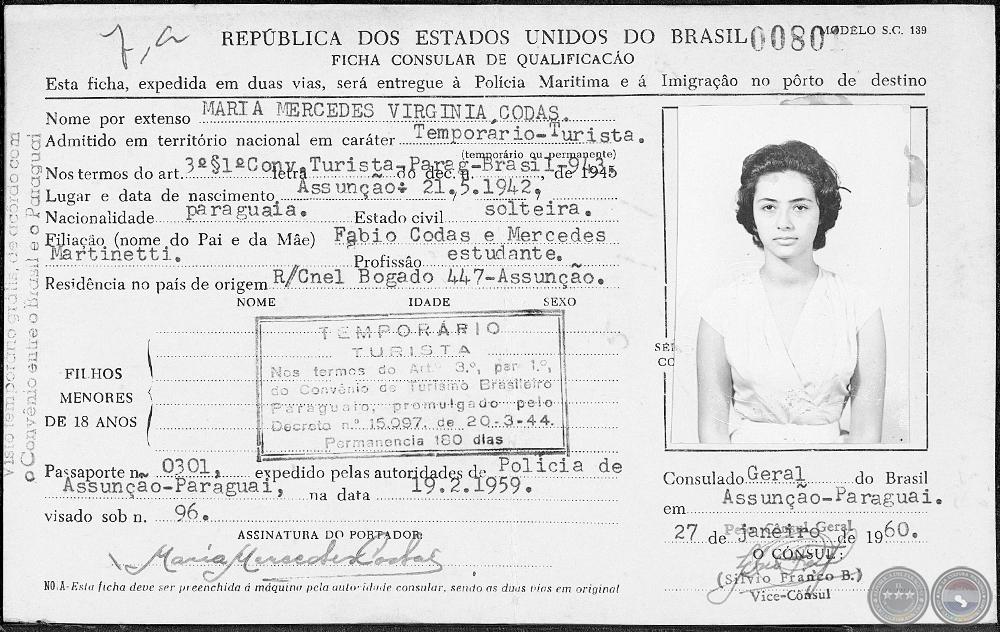 7, a
REPÚBLICA DOS ESTADOS UNIDOS DO BRASIL 0080 MODÊLO S.C. 139
FICHA CONSULAR DE QUALIFICACÁO
Esta ficha, expedida em duas vias, será entregue à Polícia Marítima e á Imigração no pôrto de destino
Nome por extenso MARIA MERCEDES VIRGINIA CODAS.
Admitido em território nacional em caráter Temporário-Turista.
(temporário ou permanente)
Nos termos do art. 3º§1ºConv letra Turista-Parag-Brasil-943. do dec. n. , de 1945
Lugar e data de nascimento Assunção: 21,5.1942,
Nacionalidade paraguaia. Estado civil solteira.
Filiação (nome do Pai e da Mãe) Fabio Codas e Mercedes
Martinetti. Profissão estudante.
Residência no país de origem R/Cnel Bogado 447-Assunção.
NOME IDADE SEXO
FILHOS
MENORES
DE 18 ANOS
TEMPORÁRIO
TURISTA
Nos termos do Artº 3.º, par 1.º,
do Convênio de Turismo Brasileiro
Paraguaio, promulgado pelo
Decreto n.º 15.097, de 20-3-44.
Permanencia 180 dias
Passaporte n. 0301, expedido pelas autoridades de Policia de
Assunção-Paraguai, na data 19.2.1959.
visado sob n. 96.
ASSINATURA DO PORTADOR:
Maria Mercedes Codas
NO.A-Esta ficha deve ser preenchida á máquina pela autoridade consular, sendo as duas vias em original
Visto temporario gratis, de acordo com
o Convênio entre o Brasil e o Paraguai
Consulado Geral do Brasil
em Assunção-Paraguai.
27 de janeiro de 1960.
Pelo Cônsul Geral
O CÔNSUL:
(Silvio Franco B.)
Vice-Cônsul